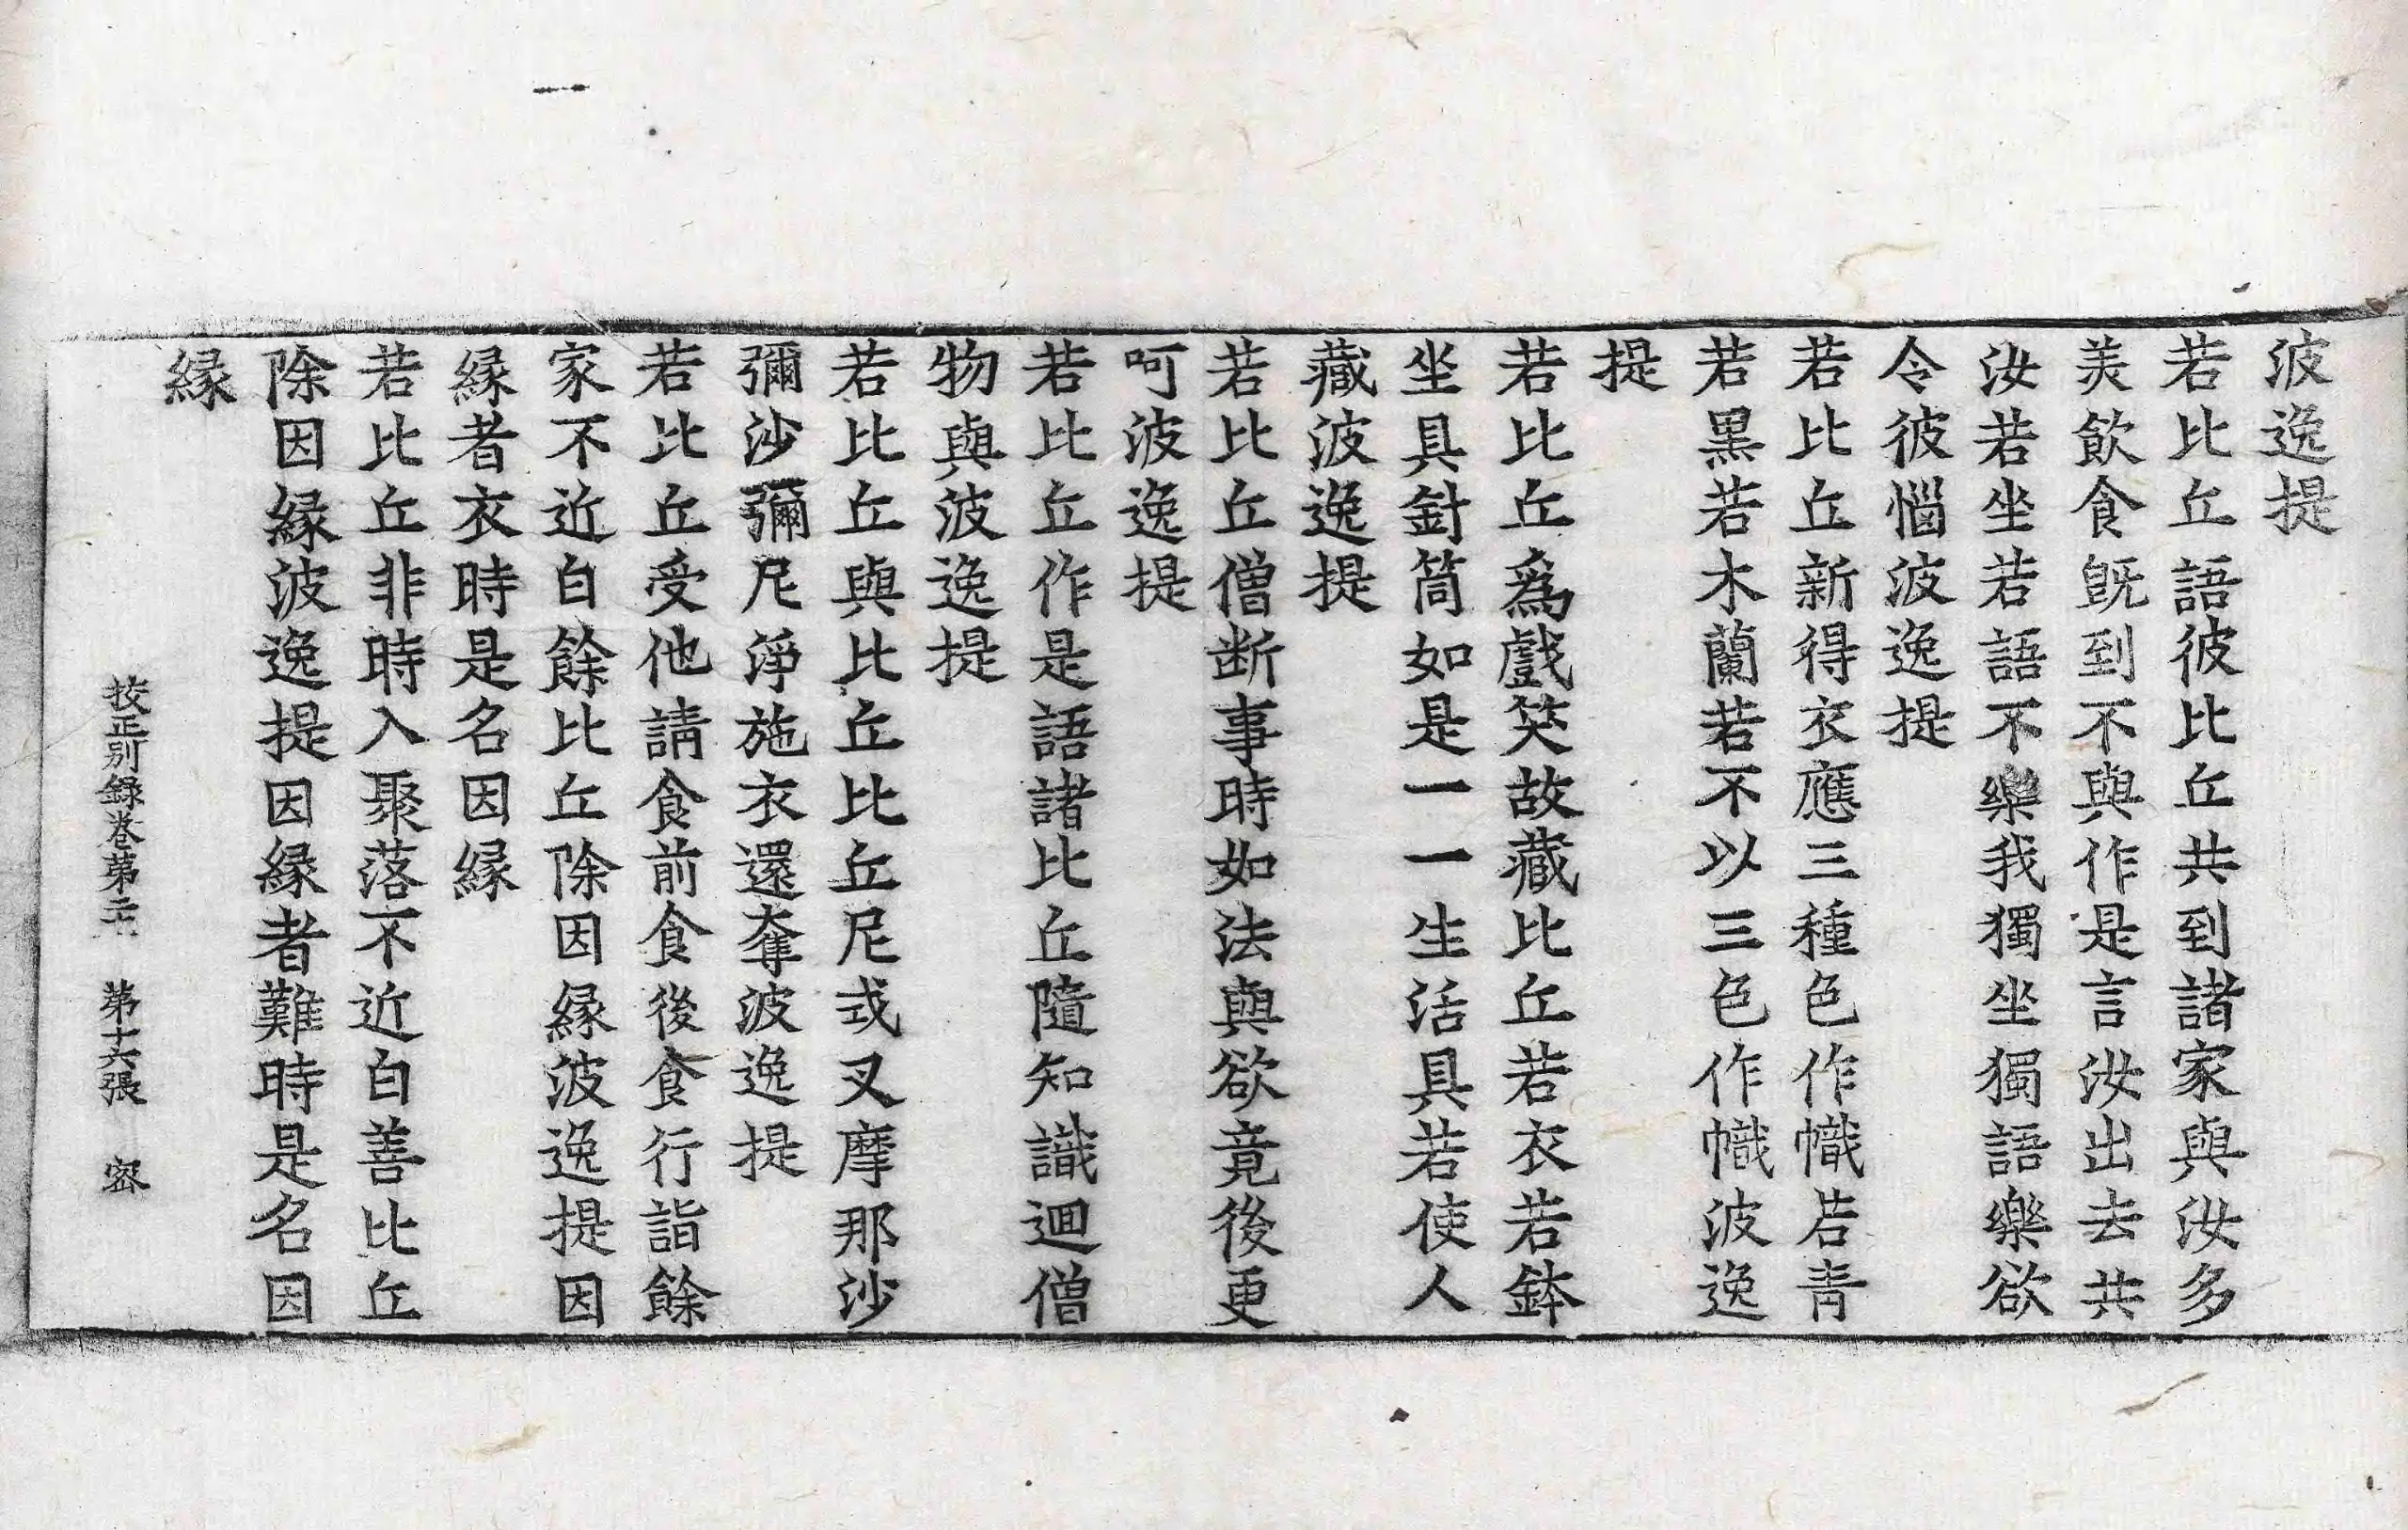 波逸提
若比丘語彼比丘共到諸家與汝多
美飲食旣到不與作是言汝出去共
汝若坐若語不樂我獨坐獨語樂欲
令彼惱波逸提
若比丘新得衣應三種色作幟若青
若黑若木蘭若不以三色作幟波逸
提
若比丘爲戲笑故藏比丘若衣若鉢
坐具針筒如是一一生活具若使人
藏波逸提
若比丘僧断事時如法與欲竟後更
呵波逸提
若比丘作是語諸比丘隨知識迴僧
物與波逸提
若比丘與比丘比丘尼式叉摩那沙
彌沙彌尼淨施衣還奪波逸提
若比丘受他請食前食後食行詣餘
家不近白餘比丘除因縁波逸提因
縁者衣時是名因縁
若比丘非時入聚落不近白善比丘
除因縁波逸提因縁者難時是名因
縁
校正別錄卷第二十 第十六張 密